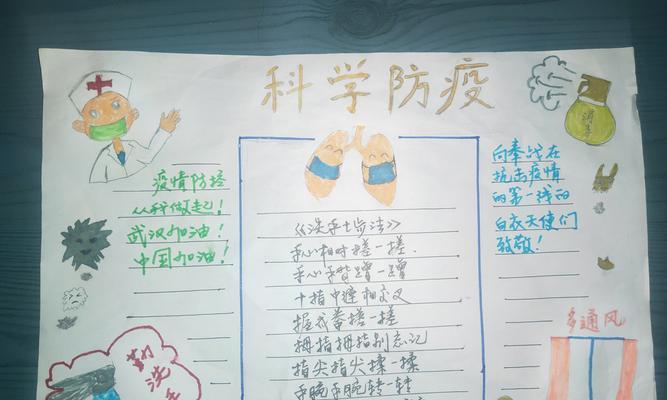 科学防疫
疫情防控
从我做起!
武汉加油!
中国加油!
《洗手步法》
手心相对搓一搓
手心手背蹭一蹭
十指中缝相交叉
握成拳搓一搓
拇指拇指别忘记
指尖指尖揉一揉
手腕手腕转一转
消毒
向奉战在
抗击疫情
的第一线的
白衣天使们
致敬!
多通风
勤洗手